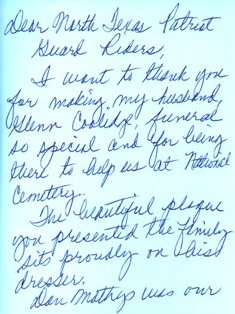 Dear North Texas Patriot
Guard Riders,
I want to thank you
for making my husband,
Glenn Coolidge, funeral
so special and for being
there to help us at National
Cemetery.
The beautiful plaque
you presented the family
sits proudly on his
dresser.
Don Mathys was our